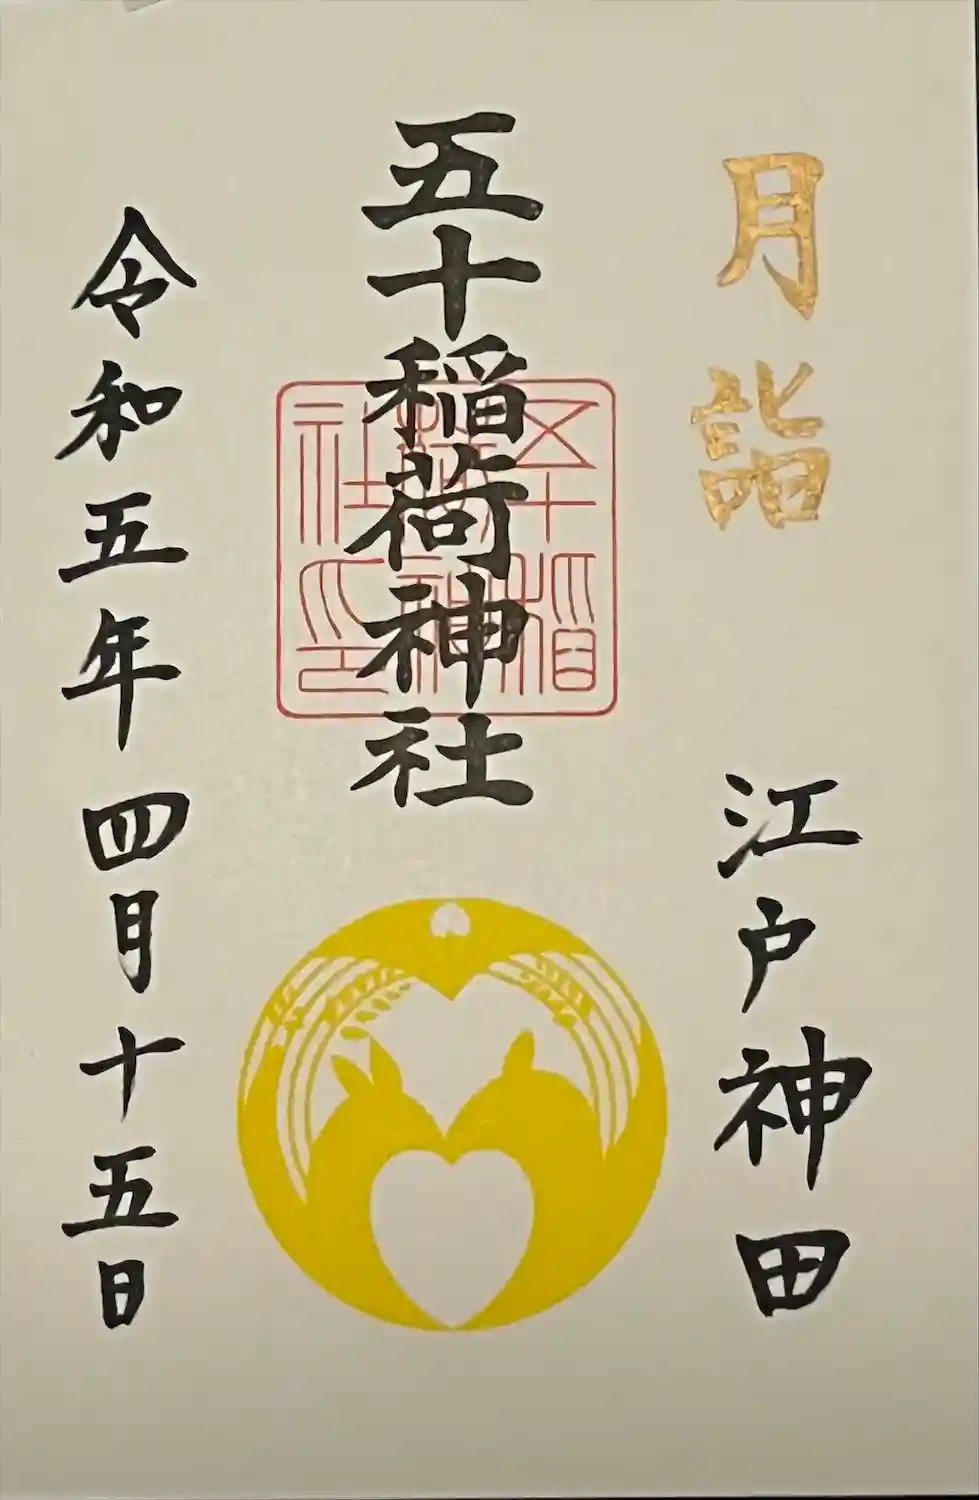 月詣
江戸神田
五十稲荷神社
五十稲荷神社印
令和五年四月十五日